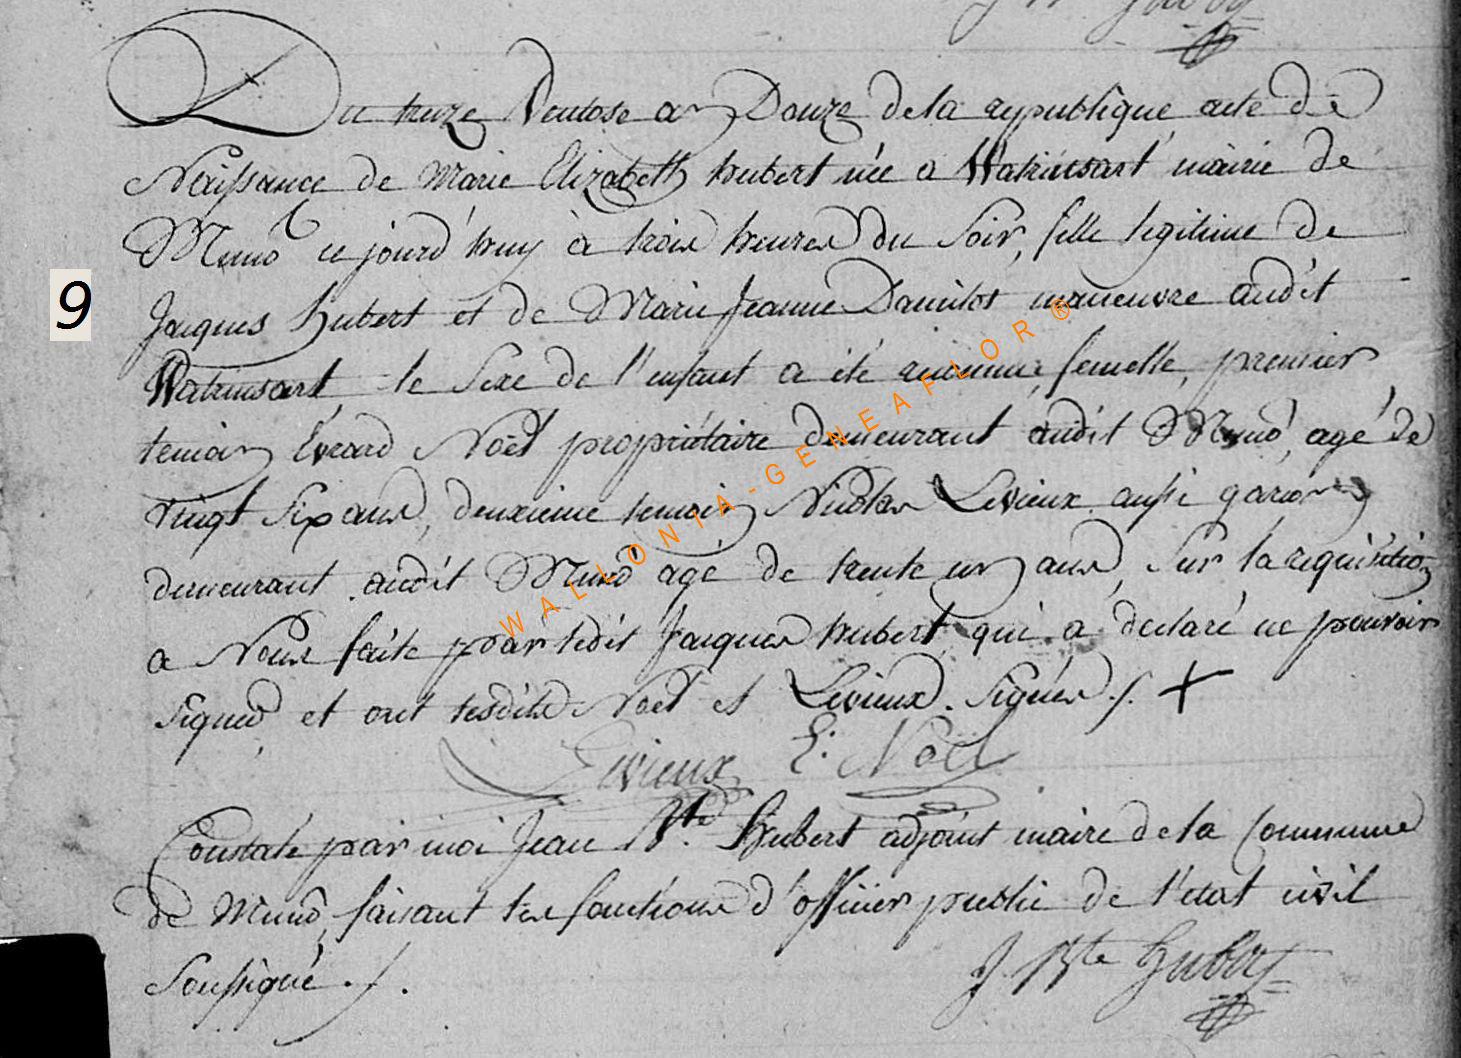 Du treize Ventose an Douze de la republique acte de
Naissance de Marie Elizabeth hubert née a Watrinsart mairie de
Muno ce jourd'huy à trois heures du Soir, fille legitime de
Jacques hubert et de Marie Jeanne manœuvre audit
Watrinsart, le Sexe de l'enfant a été reconnu femelle, premier
temoin Evrard Noël propriétaire demeurant audit Muno, agé de
vingt Six ans, deuxieme temoin Nicolas Levieux aussi garçon
demeurant audit Muno agé de trente un ans, Sur la requisition
a Nous faite par ledit Jacques hubert qui a declaré ne pouvoir
signer et ont lesdits Noël et Levieux Signés ./. +
Levieux E: Noël
Constaté par moi Jean Bte. Hubert adjoint maire de la Commune
de Muno, faisant les fonctions d'officier public de l'etat civil
Soussigné ./.
J. Bte Hubert
9
WALLONIA-GENEAFLOR®